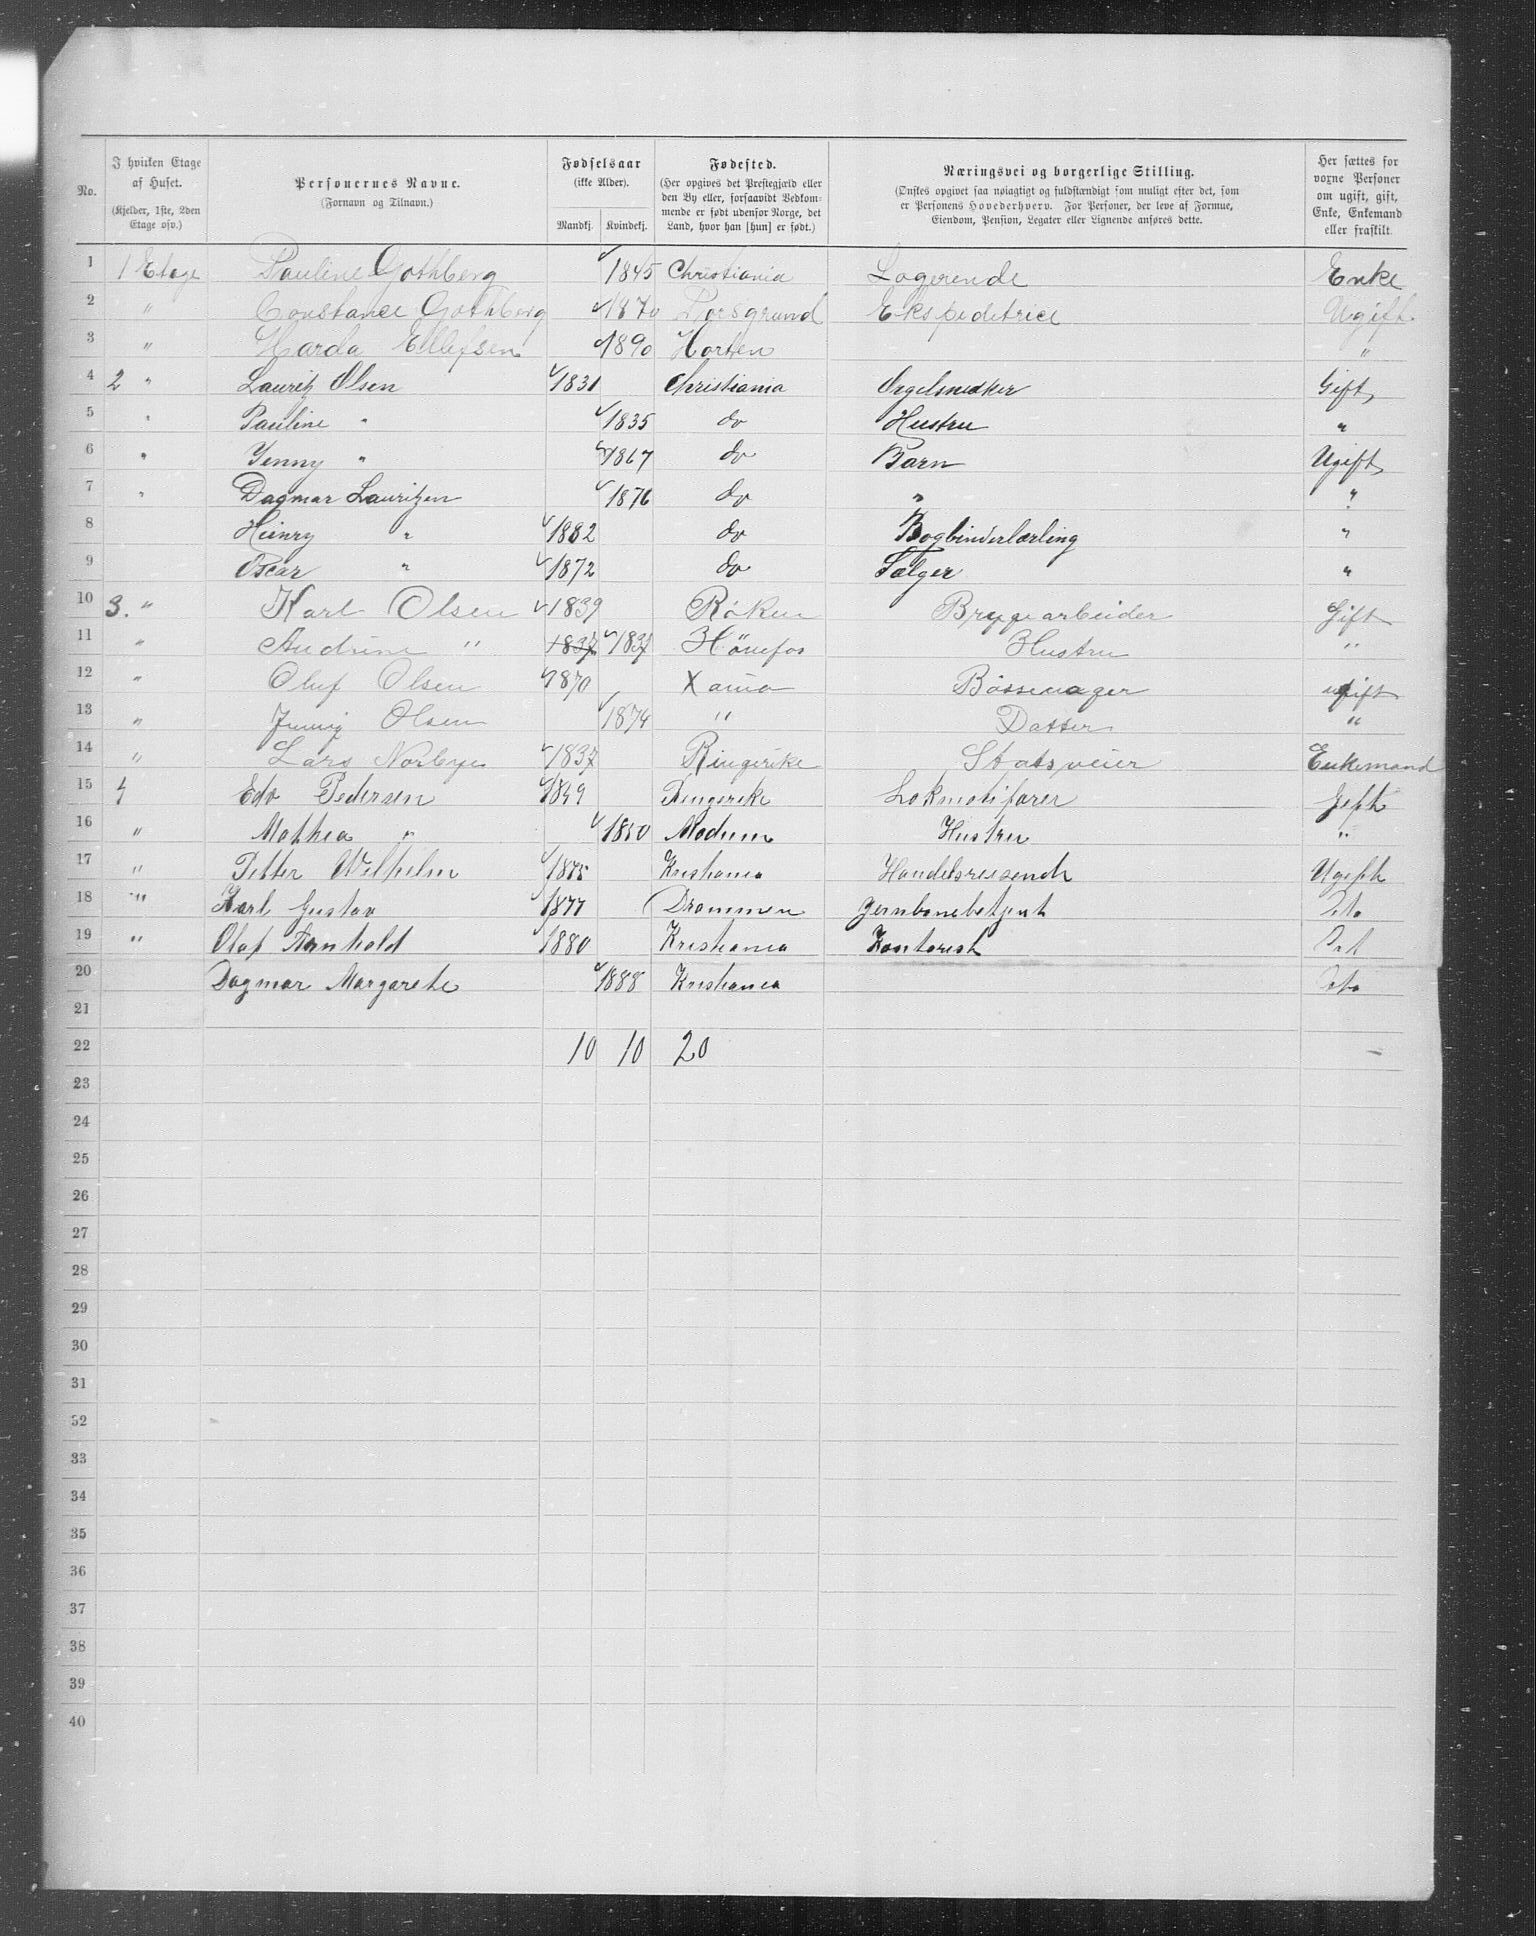 No. I hvilken Etage af Huset. (Kjelder, 1ste, 2den Etage osv.) Personernes Navne. (Fornavn og Tilnavn.) Fødselsaar (ikke Alder). Mandkj. Kvindekj. Fødested. (Her opgives det Prestegjæld eller den By eller, forsaavidt Vedkommende er født udenfor Norge, det Land, hvor han [hun] er født.) Næringsvei og borgerlige Stilling. (Ønskes opgivet saa nøiagtigt og fuldstændigt som muligt efter det, som er Personens Hovederhverv. For Personer, der leve af Formue, Eiendom, Pension, Legater eller Lignende anføres dette. Her sættes for voxne Personer om ugift, gift, Enke, Enkemand eller fraskilt.
1 1 Etage Pauline Gothberg 1845 Christiania Logerende Enke
2 " Constance Gothberg 1870 Porsgrund Ekspeditrice Ugift.
3 " Harda Ellefsen 1890 Horten "
4 2 " Lauritz Olsen 1831 Christiania Orgelsnekker Gift
5 " Pauline " 1835 do Hustru "
6 " Jenny " 1867 do Barn Ugift
7 " Dagmar Lauritzen 1876 do " "
8 Henry " 1882 do Bogbinderlærling "
9 Oscar " 1872 do Sælger "
10 3. " Karl Olsen 1839 Röken Bryggearbeider Gift
11 " Andrine " 1837 1837 Hönefos Hustru "
12 " Oluf Olsen 1870 Xania Bössemager ugift
13 " Jenny Olsen 1874 " Datter "
14 " Lars Norbye 1837 Ringerike Enkemand
15 4 Edv Pedersen 1849 Ringerike Lokmotifører Gift
16 " Mathea " 1850 Modum Hustru "
17 " Petter Wilhelm 1875 Kristiania Handelsreisende Ugift
18 " Karl Gustav 1877 Drammen Jernbanebetjent Do
19 " Olaf Arnhold 1880 Kristiania Kontorist Do
20 Dagmar Margarete 1888 Kristiania Do
21
22 10 10 20
23
24
25
26
27
28
29
30
31
32
33
34
35
36
37
38
39
40